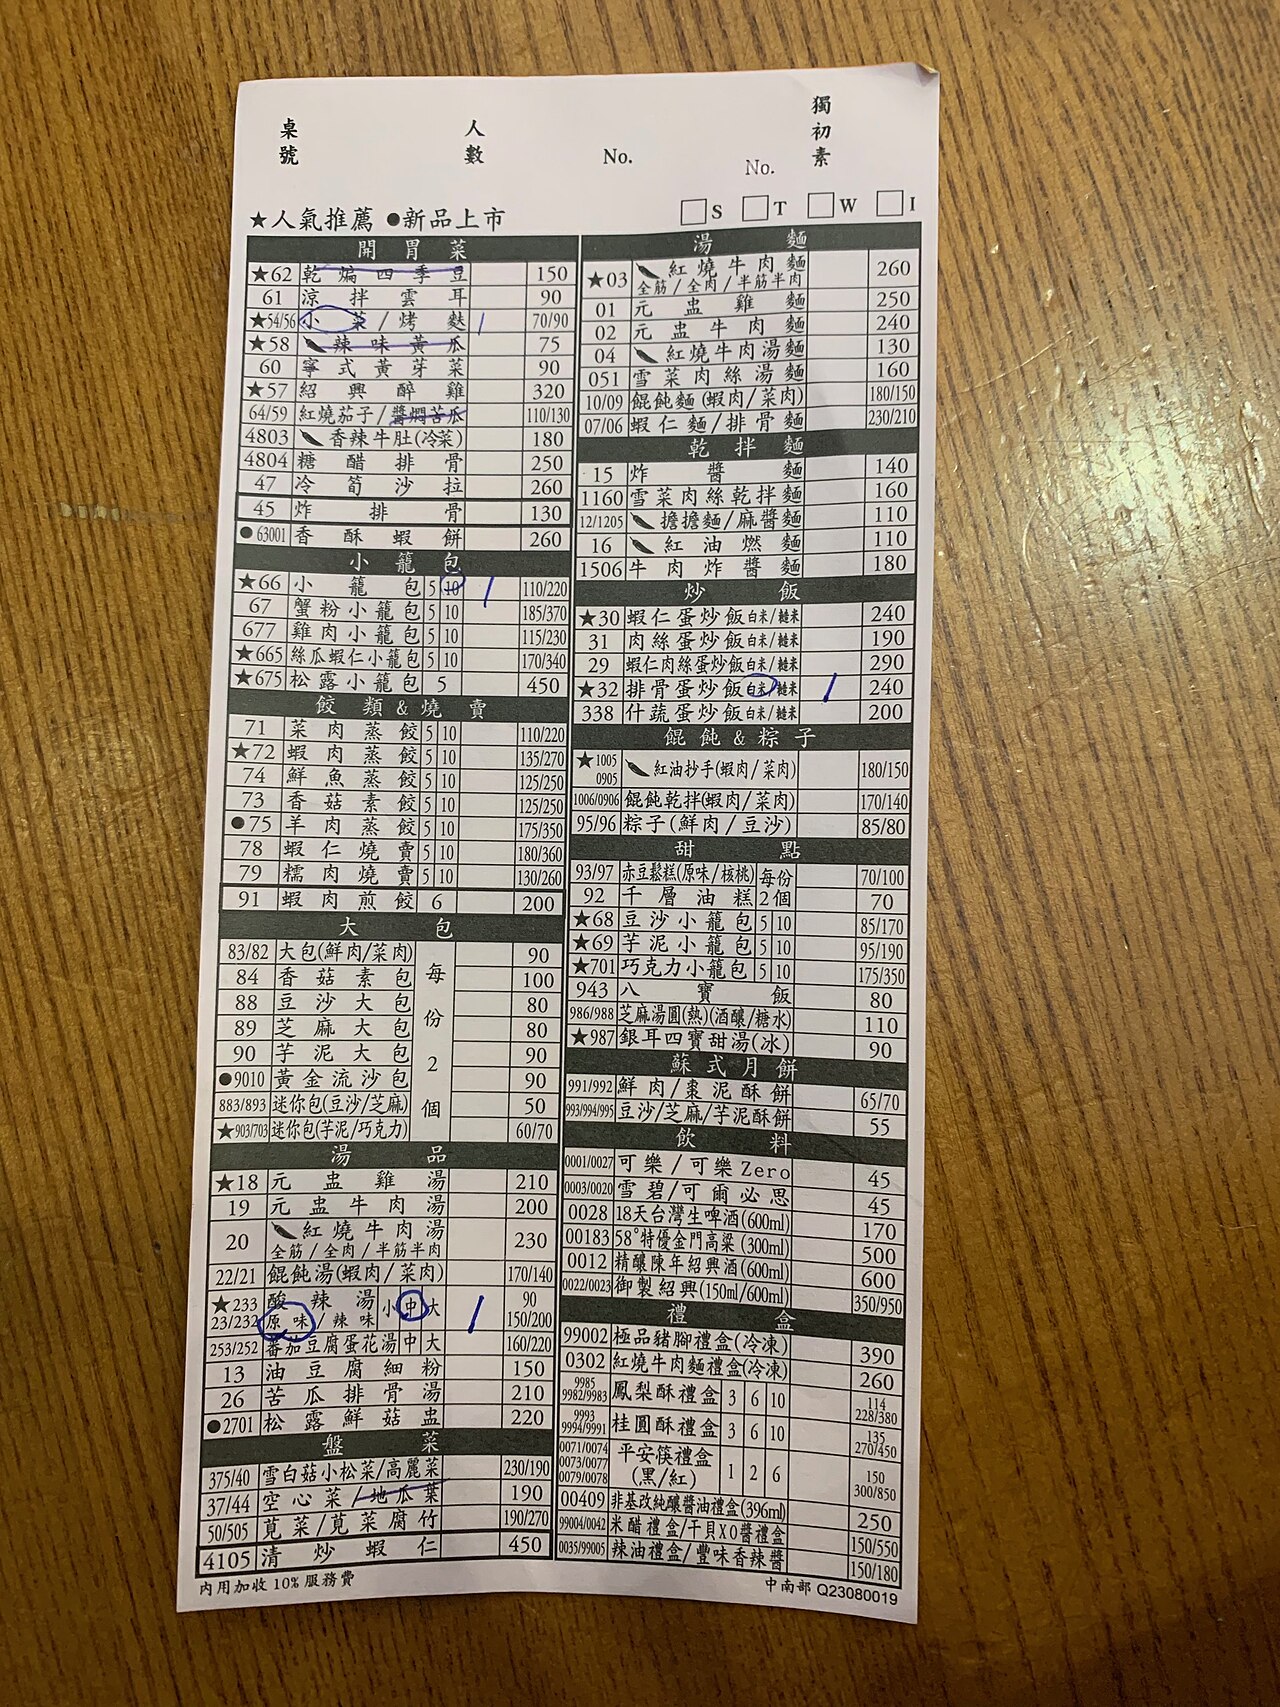 桌號 人數 No. No. 獨初素
★人氣推薦 ●新品上市 □S □T □W □I
開胃菜
★62 乾煸四季豆 150
61 涼拌雲耳 90
★54/56 小菜/烤麩 1 70/90
★58 辣味黃瓜 75
60 寧式黃芽菜 90
★57 紹興醉雞 320
64/59 紅燒茄子/醬燜苦瓜 110/130
4803 香辣牛肚(冷菜) 180
4804 糖醋排骨 250
47 冷筍沙拉 260
45 炸排骨 130
●63001 香酥蝦餅 260
小籠包
★66 小籠包 5 10 1 110/220
67 蟹粉小籠包 5 10 185/370
677 雞肉小籠包 5 10 115/230
★665 絲瓜蝦仁小籠包 5 10 170/340
★675 松露小籠包 5 450
餃類&燒賣
71 菜肉蒸餃 5 10 110/220
★72 蝦肉蒸餃 5 10 135/270
74 鮮魚蒸餃 5 10 125/250
73 香菇素餃 5 10 125/250
●75 羊肉蒸餃 5 10 175/350
78 蝦仁燒賣 5 10 180/360
79 糯肉燒賣 5 10 130/260
91 蝦肉煎餃 6 200
大包
每份2個
83/82 大包(鮮肉/菜肉) 90
84 香菇素包 100
88 豆沙大包 80
89 芝麻大包 80
90 芋泥大包 90
●9010 黃金流沙包 90
883/893 迷你包(豆沙/芝麻) 50
★903/703 迷你包(芋泥/巧克力) 60/70
湯品
★18 元盅雞湯 210
19 元盅牛肉湯 200
20 紅燒牛肉湯 230
全筋/全肉/半筋半肉
22/21 餛飩湯(蝦肉/菜肉) 170/140
★233 酸辣湯 小中大 1 90
23/232 原味/辣味 150/200
253/252 蕃茄豆腐蛋花湯 中 大 160/220
13 油豆腐細粉 150
26 苦瓜排骨湯 210
●2701 松露鮮菇盅 220
盤菜
375/40 雪白菇小松菜/高麗菜 230/190
37/44 空心菜/地瓜葉 190
50/505 莧菜/莧菜腐竹 190/270
4105 清炒蝦仁 450
內用加收10%服務費
湯麵
★03 紅燒牛肉麵 260
全筋/全肉/半筋半肉
01 元盅雞麵 250
02 元盅牛肉麵 240
04 紅燒牛肉湯麵 130
051 雪菜肉絲湯麵 160
10/09 餛飩麵(蝦肉/菜肉) 180/150
07/06 蝦仁麵/排骨麵 230/210
乾拌麵
15 炸醬麵 140
1160 雪菜肉絲乾拌麵 160
12/1205 擔擔麵/麻醬麵 110
16 紅油燃麵 110
1506 牛肉炸醬麵 180
炒飯
★30 蝦仁蛋炒飯 白米/糙米 240
31 肉絲蛋炒飯 白米/糙米 190
29 蝦仁肉絲蛋炒飯 白米/糙米 290
★32 排骨蛋炒飯 白米/糙米 1 240
338 什蔬蛋炒飯 白米/糙米 200
餛飩&粽子
★1005 0905 紅油抄手(蝦肉/菜肉) 180/150
1006/0906 餛飩乾拌(蝦肉/菜肉) 170/140
95/96 粽子(鮮肉/豆沙) 85/80
甜點
93/97 赤豆鬆糕(原味/核桃) 每份 70/100
92 千層油糕 2個 70
★68 豆沙小籠包 5 10 85/170
★69 芋泥小籠包 5 10 95/190
★701 巧克力小籠包 5 10 175/350
943 八寶飯 80
986/988 芝麻湯圓(熱)(酒釀/糖水) 110
★987 銀耳四寶甜湯(冰) 90
蘇式月餅
991/992 鮮肉/棗泥酥餅 65/70
993/994/995 豆沙/芝麻/芋泥酥餅 55
飲料
0001/0027 可樂/可樂Zero 45
0003/0020 雪碧/可爾必思 45
0028 18天台灣生啤酒(600ml) 170
00183 58°特優金門高粱(300ml) 500
0012 精釀陳年紹興酒(600ml) 600
0022/0023 御製紹興(150ml/600ml) 350/950
禮盒
99002 極品豬腳禮盒(冷凍) 390
0302 紅燒牛肉麵禮盒(冷凍) 260
9985 9982/9983 鳳梨酥禮盒 3 6 10 114 228/380
9993 9994/9991 桂圓酥禮盒 3 6 10 135 270/450
0071/0074 0073/0077 0079/0078 平安筷禮盒(黑/紅) 1 2 6 150 300/850
00409 非基改純釀醬油禮盒(396ml) 250
99004/0042 米醋禮盒/干貝XO醬禮盒 150/550
0035/99005 辣油禮盒/豐味香辣醬 150/180
中南部 Q23080019